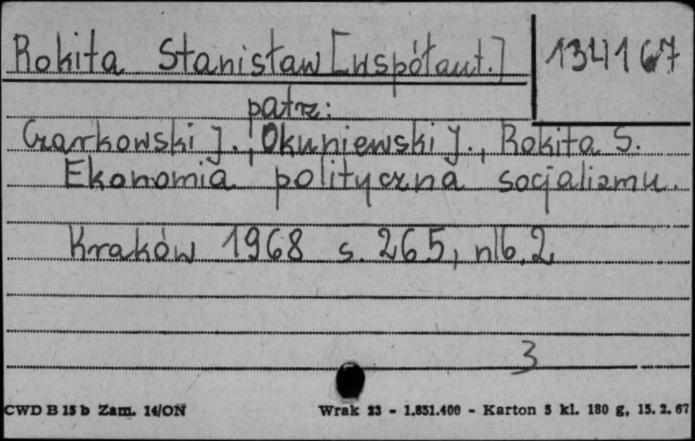 Rokita Stanisław [współaut.]
134167
patrz:
Czarkowski J., Okuniewski J., Rokita S.
Ekonomia polityczna socjalizmu.
Kraków 1968 s. 265, nlb. 2
3
CWD B 15 b Zam. 14/ON
Wrak 23 - 1.851.400 - Karton 3 kl. 180 g, 15. 2. 67